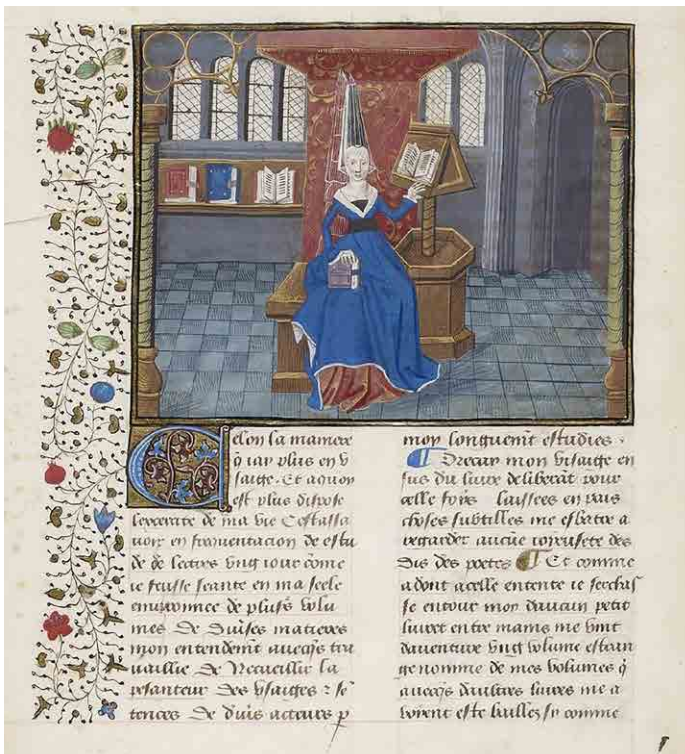 Selon la maniere
q iay plus en v
saige. Et a quoy
est plus dispose
lexercite de ma vie Cestassa
uoir en frequentacion de estu
de de lectres vng iour come
ie feusse seante en ma selle
enuironnee de plusrs volu
mes de diuses matieres
mon entendemt auecqs tra
uaillie de Recueillir la
pesanteur des vsaiges z se
tences de diuis acteurs p
moy longuemt estudies.
¶ Drecay mon visaige en
sus du liure deliberat pour
celle fois laissees en pais
choses subtilles me esbatre a
regarder aucue ioyeusete des
dis des poetes ¶ Et comme
adont acelle entente ie serchas
se entour moy daucun petit
liuret entre mains me vint
dauenture vng volume estran
ge nomme de mes volumes q
auecqs daultres liures me a
voient este baillez sy comme